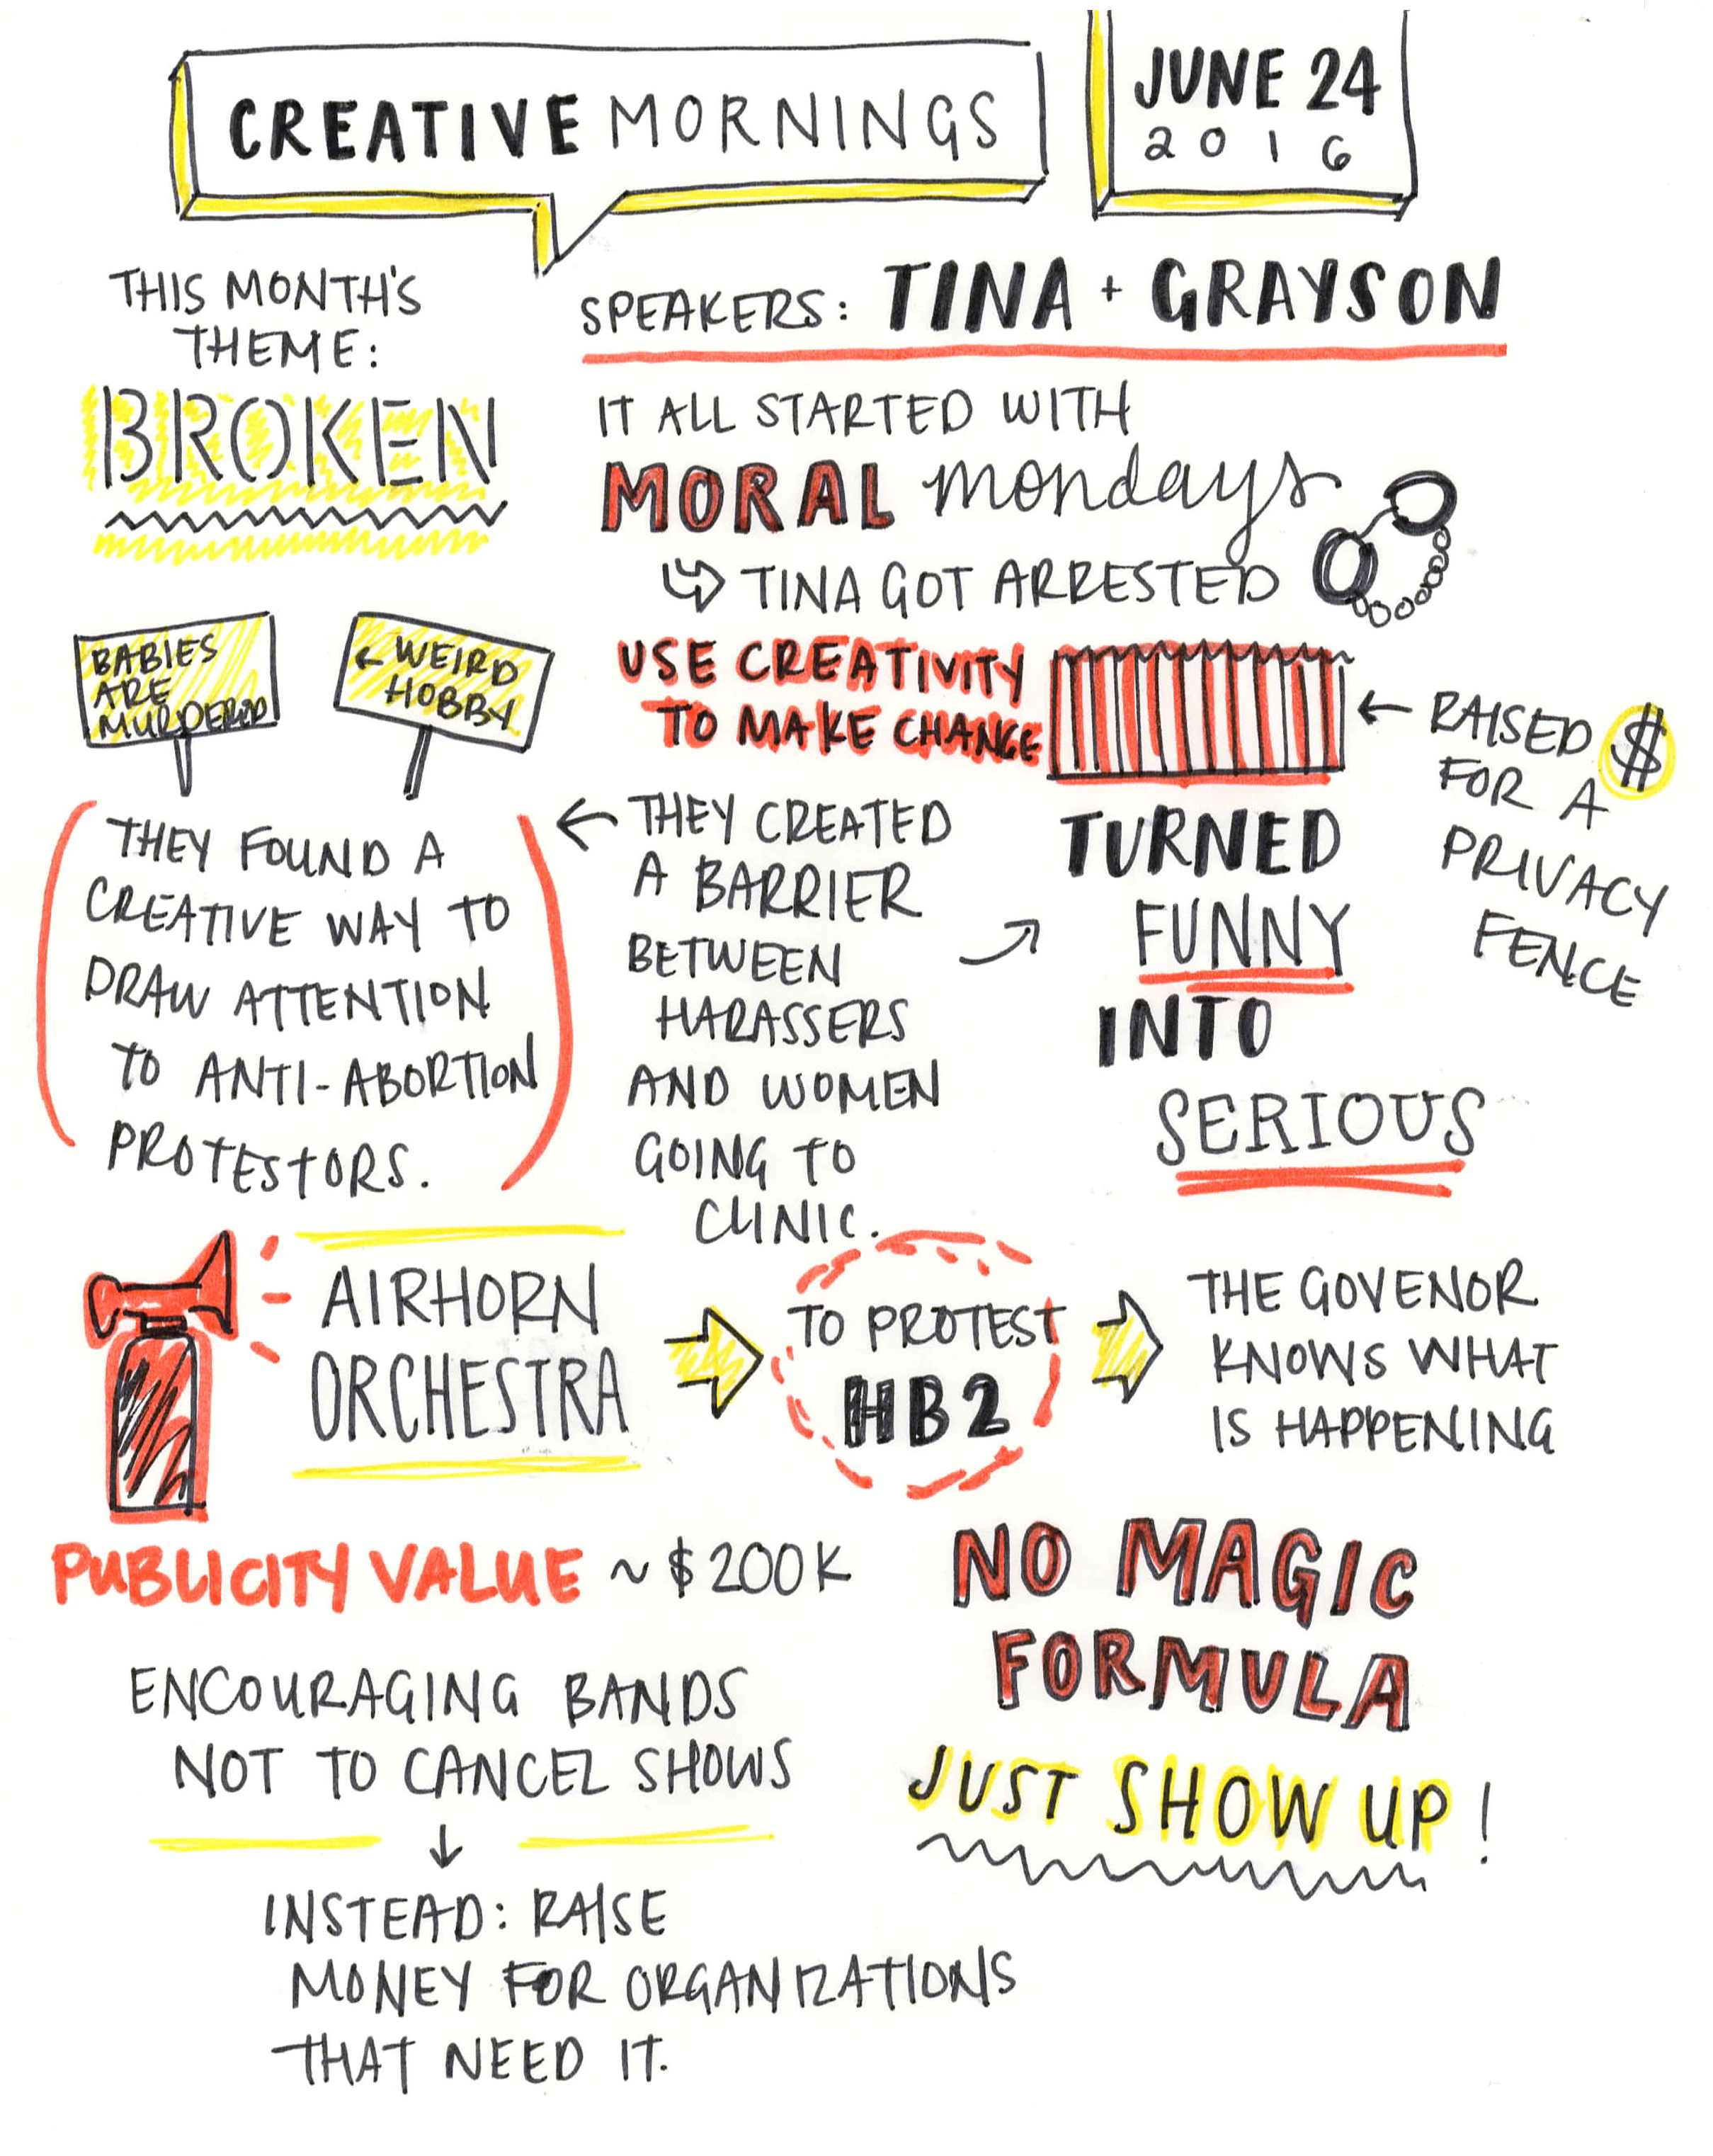 CREATIVEMORNINGS
JUNE 24
2016
THIS MONTH'S
THEME:
BROKEN
SPEAKERS: TINA + GRAYSON
IT ALL STARTED WITH
MORAL mondays
↳ TINA GOT ARRESTED
BABIES
ARE
MURDERED
← WEIRD
HOBBY
USE CREATIVITY
TO MAKE CHANGE
← RAISED $
FOR A
PRIVACY
FENCE
THEY FOUND A
CREATIVE WAY TO
DRAW ATTENTION
TO ANTI-ABORTION
PROTESTORS.
← THEY CREATED
A BARRIER
BETWEEN
HARASSERS
AND WOMEN
GOING TO
CLINIC.
TURNED
FUNNY
INTO
SERIOUS
AIRHORN
ORCHESTRA
TO PROTEST
HB2
THE GOVENOR
KNOWS WHAT
IS HAPPENING
PUBLICITY VALUE ~ $200K
ENCOURAGING BANDS
NOT TO CANCEL SHOWS
↓
INSTEAD: RAISE
MONEY FOR ORGANIZATIONS
THAT NEED IT.
NO MAGIC
FORMULA
JUST SHOW UP!